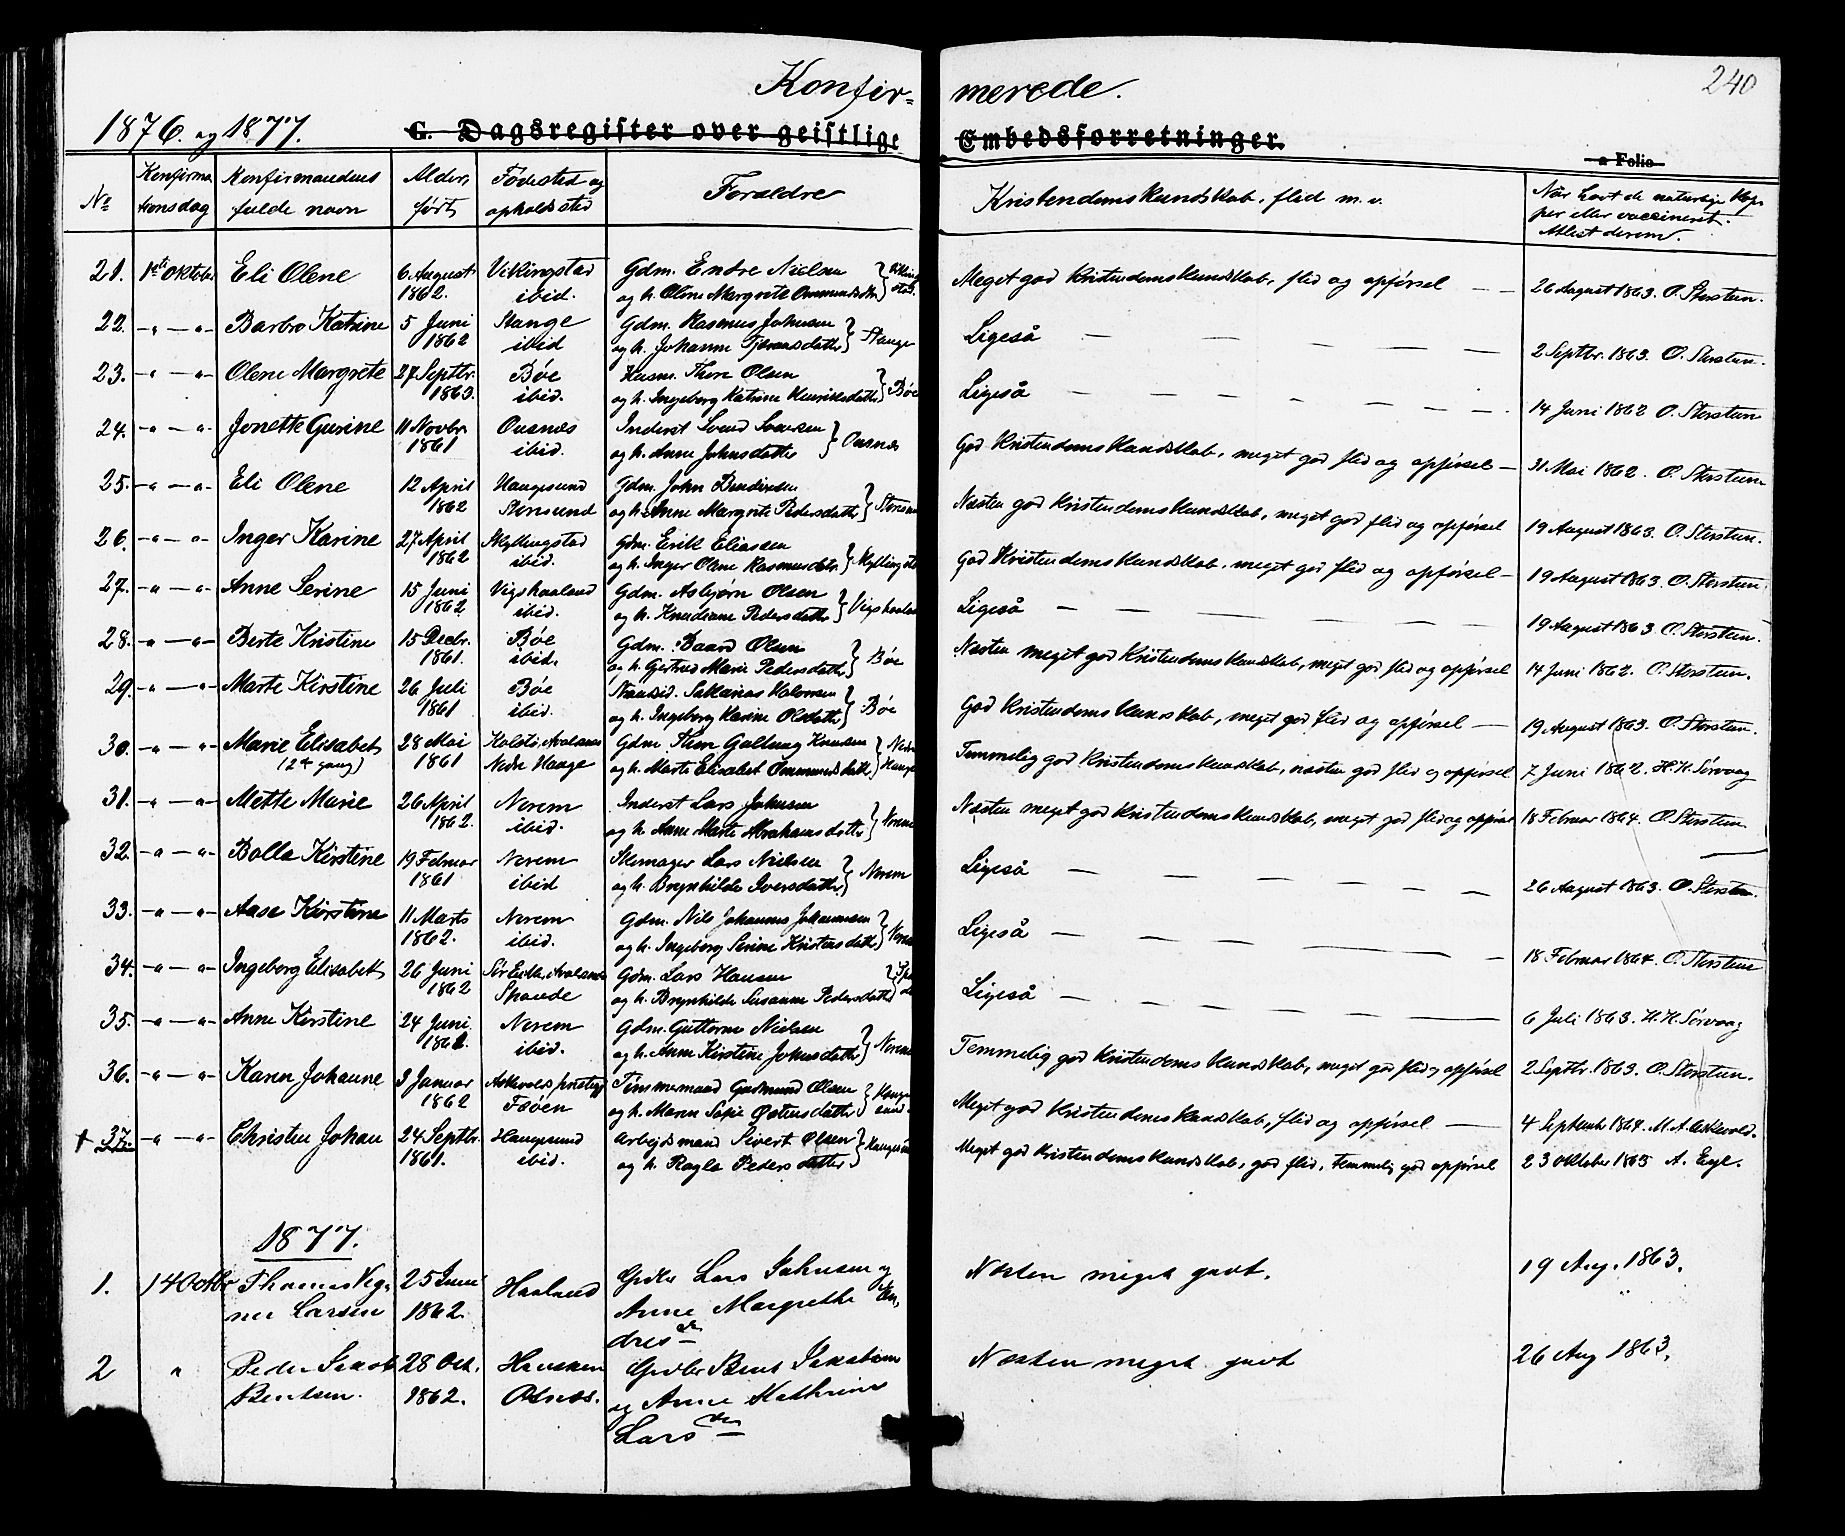 Konfir= merede.
240
1876. og 1877.
G. Dagsregister over geistlige Embedsforretninger.
a Folio
No
Konfirma
tionsdag
Konfirmandens
fulde navn
Alder,
født
Fødested og
opholdssted
Forældre
Kristendomskundskab, flid m. v.
Når havt de naturlige kop-
per eller vaccineret.
Attest derom.
21. 1ste Oktober Eli Olene 6 August Vikingstad Gdm. Endre Nielsen
1862. ibid. og h. Olene Margrete Ommundsdtr
Meget god Kristendomskundskab, flid og opførsel — — 26 August 1863. O. Storstein.
22. -"- -"- Barbro Katrine 5 Juni Stange Gdm. Rasmus Johnsen
1862 ibid og h. Johanne datter } Stange
Ligeså — — — — — 2 Septbr. 1863. O. Storstein.
23. -"- -"- Olene Margrete 27 Septbr. Bøe Husm. Thore Olsen
1863. ibid. og h. Ingeborg Katrine Henriksdatter } Bøe
Ligeså — — — — — 14 Juni 1862 O. Storstein
24. -"- -"- Jonette Gurine 11 Novbr Inderst Svend
1861 ibid. og h. Anne Johnsdatter }
God Kristendomskundskab, meget god flid og opførsel — 31 Mai 1862. O. Storstein
25. -"- -"- Eli Olene 12 April Haugesund Gdm. John
1862 Storesund og h. Anne Margrete Pedersdatter }
Næsten god Kristendomskundskab, meget god flid og opførsel 19 August 1863. O. Storstein.
26. -"- -"- Inger Karine 27 April Skyllingstad Gdm. Erik Eliassen
1862 ibid. og h. Inger Olene Rasmusdtr. }
God Kristendomskundskab, meget god flid og opførsel — 19 August 1863. O. Storstein.
27. -"- -"- Anne Serine 15 Juni Vigshaaland Gdm. Asbjørn Olsen
1862. ibid. og h. Knudiane Pedersdatter }
Ligeså — — — — — 19 August 1863 O. Storstein.
28. -"- -"- Berte Kristine 15 Decbr. Bøe Gdm. Baard Olsen
1861. ibid. og h. Gjertrud Marie Pedersdatter } Bøe
Næsten meget god Kristendomskundskab, meget god flid og opførsel 14 Juni 1862. O. Storstein.
29. -"- -"- Marte Kirstine 26 Juli Bøe Sakarias
1861 ibid. og h. Ingeborg Karine Olsdatter } Bøe
God Kristendomskundskab, meget god flid og opførsel — 19 August 1863. O. Storstein.
30. -"- -"- Marie Elisabet 28 Mai Avalsnes Gdm Thore Galtung Knudsen
(2den gang) 1861 Nedre Hauge og h. Marte Elisabet Ommundsdatter }
Temmelig god Kristendomskundskab, næsten god flid og opførsel 7 Juni 1862. H. H. Sørvaag
31. -"- -"- Mette Marie 26 April Norem Inderst Lars Johnsen
1862. ibid. og h. Anne Marte Abrahamsdatter }
Næsten meget god Kristendomskundskab, meget god flid og opførsel 18 Februar 1864. O. Storstein
32. -"- -"- Bolla Kirstine 19 Februar Norem Skomager Lars Nielsen
1861 ibid og h. Brynhilde Iversdatter } Norem
Ligeså — — — — — 26 August 1863. O. Storstein.
33. -"- -"- Aase Kirstine 11 Marts Norem Gdm. Nils Johannes Johannesen
1862. ibid. og h. Ingeborg Serine Kristensdatter }
Ligeså — — — — — 18 Februar 1864. O. Storstein
34. -"- -"- Ingeborg Elisabet 26 Juni Avalsnes Gdm. Lars Hansen
1862 Spande og h. Brynhilde Susanne Pedersdatter }
Ligeså — — — — — 6 Juli 1863. H. H. Sørvaag
35. -"- -"- Anne Kirstine 24 Juni Norem Gdm. Guttorm Nielsen
1862. ibid. og h. Anne Kirstine Johnsdatter }
Temmelig god Kristendomskundskab, meget god flid og opførsel 2 Septbr. 1863. O. Storstein.
36. -"- -"- Karen Johanne 3 Januar Askvolds præstegj Tømmermand Gudmund Olsen
1862 Føøen og h. Maren Sofie Østensdatter }
Meget god Kristendomskundskab, flid og opførsel — 4 September 1864. M. A. Askevold.
† 37. -"- -"- Christen Johan 24 Septbr. Haugesund Arbejdsmand Sivert Olsen
1861. ibid. og h. Ragla Pedersdatter }
Meget god Kristendomskundskab, god flid, temmelig god opførsel 23 Oktober 1865 A.
1877.
1. 14 Octbr Thomas Veg- 25 Juni Haaland Grdbr Lars Johnsen og
ner Larsen 1862. Anne Margrethe En-
dresdr
Næsten meget godt. 19 Aug. 1863.
2 " Peder Jakob 28 Oct. Hausken Grdbr Bent Jakobsen
Bentsen. 1862. og Anne Kathrine
Larsdr
Næsten meget godt 26 Aug 1863.